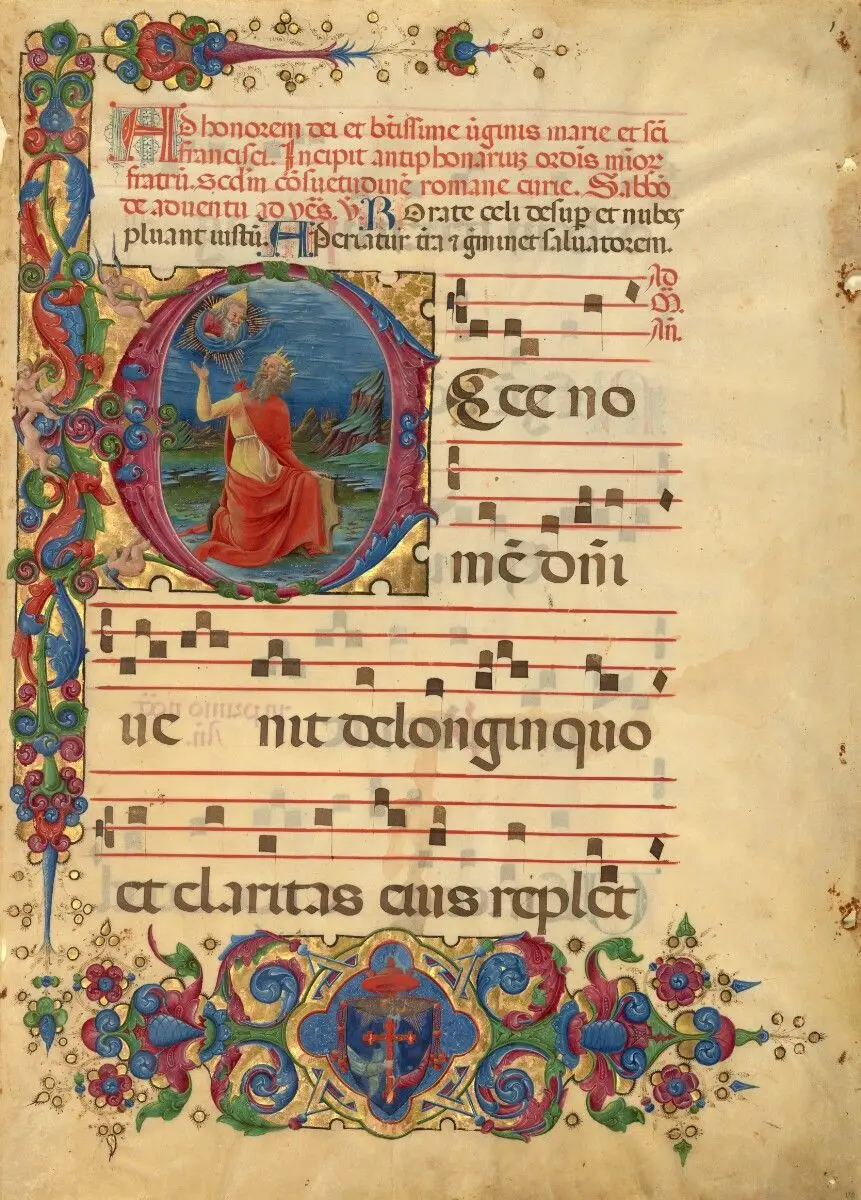 Ad honorem dei et btissime ũginis marie et sci
francisci. Incipit antiphonaruz ordĩs mĩor
fratrũ. scdm cõsuetudinẽ romane curie. Sabbo
de aduentu ad vẽs. ℣. Rorate celi desup et nubes
pluant iustũ. Aperiatur tra ⁊ gminet saluatorem.
Ad
M̃.
Añ.
Ecce no
mẽ dñi
ue nit de longinquo
et claritas eius replet